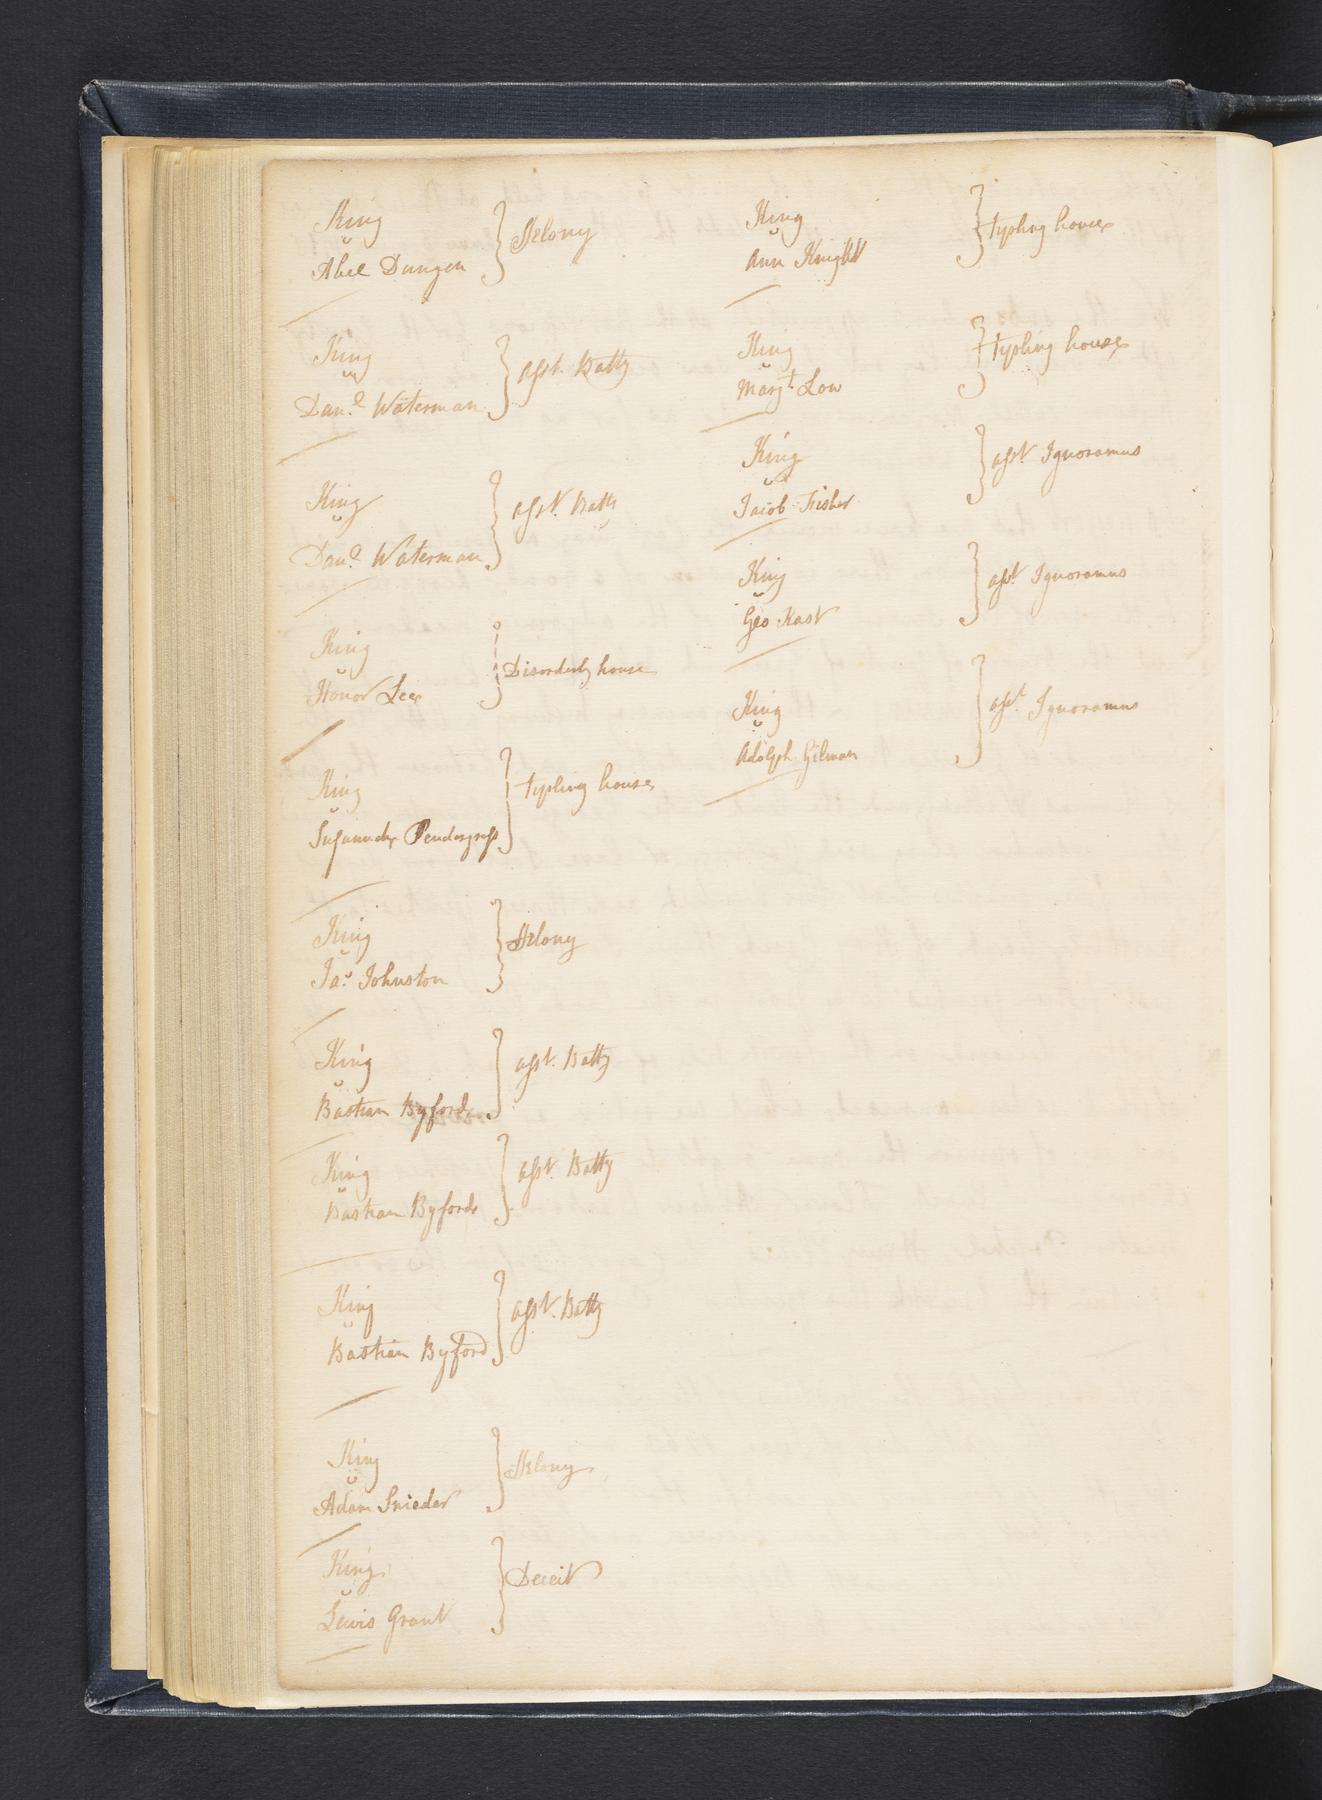 King
v
Abel Dungen } Felony
King
v
Danl Waterman } Asst. Batty
King
v
Danl Waterman } Asst. Batty
King
v
Honor Lee } Disorderly house
King
v
Susannah Pendergrass } typling house
King
v
Jas Johnston } Felony
King
v
Bastian Byford } asst. Batty
King
v
Bastian Byford } asst. Batty
King
v
Bastian Byford } asst. Batty
King
v
Adam Snieder } Felony
King
v
Lewis Grant } Deceit
King
v
Ann Knight } typling house
King
v
Margt Low } typling house
King
v
Jacob Fisher } asst Ignoramus
King
v
Geo Kast } asst Ignoramus
King
v
Adolph Gilman } asst Ignoramus